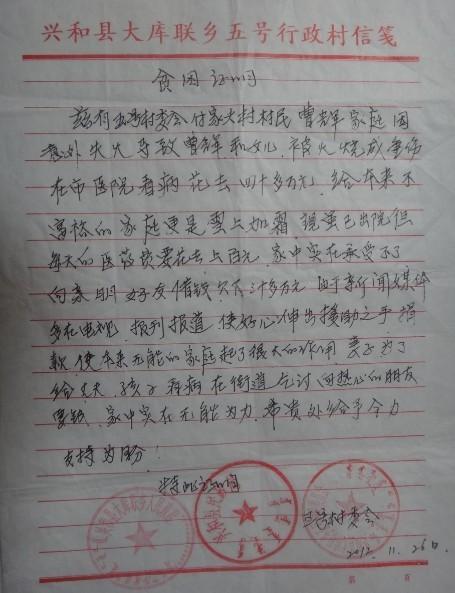 兴和县大库联乡五号行政村信笺
贫困证明
兹有五号村委会付家大村村民曹辉家庭因
意外失火导致曹辉和女儿被火烧成重伤
在市医院看病花去四十多万元，给本来不
富裕的家庭更是雪上加霜 现虽已出院但
每天的医药费要花去上百元，家中实在承受不了
向亲朋好友借钱欠下十多万元 由于新闻媒体
多在电视、报刊报道，使好心人伸出援助之手 捐
款，使本来无能的家庭起了很大的作用 妻子为了
给丈夫、孩子看病在街道乞讨 向热心的朋友
要钱、家中实在无能为力，希贵处给予大力
支持为盼！
特此证明
五号村委会
2012.11.26日
第 页